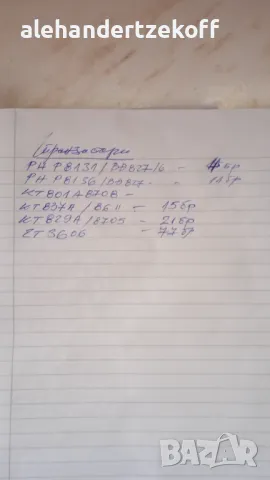 alehandertzekoff
Транзистори
PH PB131/BD827/6 - 4 бр
PH PB136/BD827 - 11 бр
KT801A 8708 -
KT837A/8611 - 15 бр
KT829A/8705 - 21 бр
2T3606 - 77 бр
BAZAR